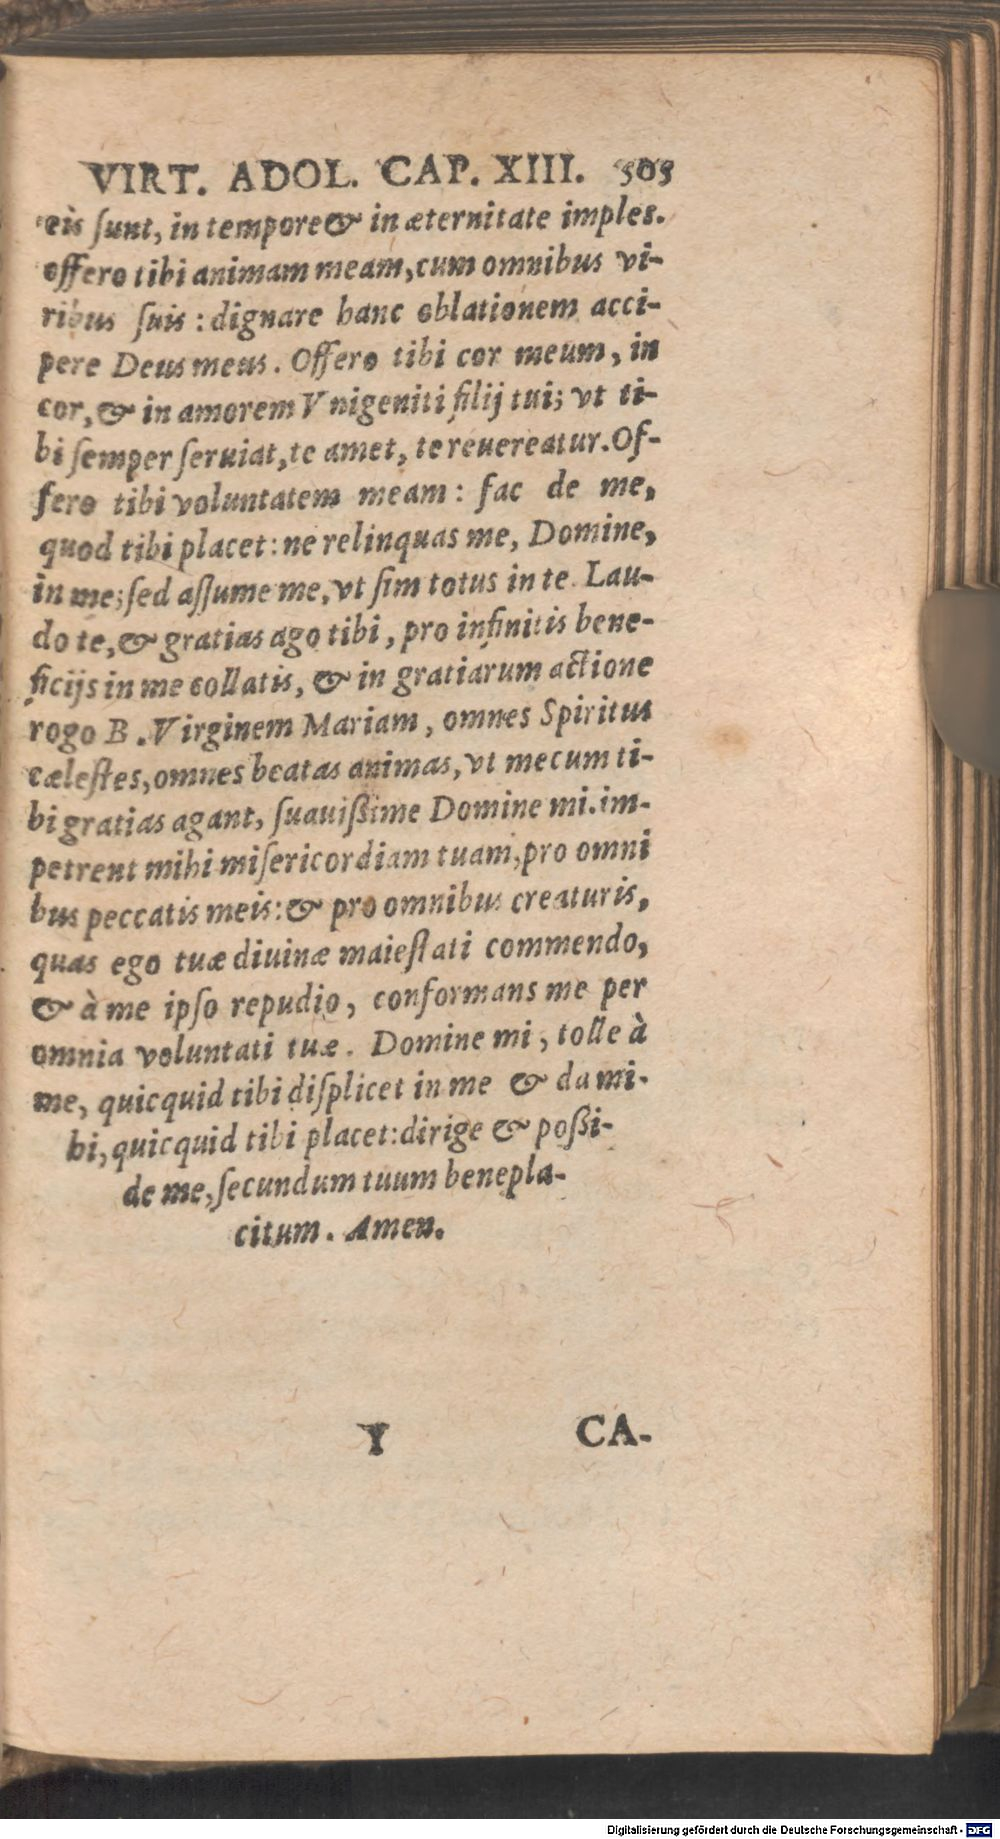 VIRT. ADOL. CAP. XIII. 505
eis sunt, in tempore & in æternitate imples.
offero tibi animam meam, cum omnibus vi-
ribus ſuis : dignare hanc oblationem acci-
pere Deus meus. Offero tibi cor meum, in
cor, & in amorem Vnigeniti filij tui; vt ti-
bi ſemper ſeruiat, te amet, te reuereatur. Of-
fero tibi voluntatem meam : fac de me,
quod tibi placet: ne relinquas me, Domine,
in me; ſed aſſume me, vt ſim totus in te. Lau-
do te, & gratias ago tibi, pro infinitis bene-
ficijs in me collatis, & in gratiarum actione
rogo B. Virginem Mariam, omnes Spiritus
cæleſtes, omnes beatas animas, vt mecum ti-
bi gratias agant, ſuauißime Domine mi. im-
petrent mihi miſericordiam tuam, pro omni
bus peccatis meis: & pro omnibus creaturis,
quas ego tuæ diuinæ maieſtati commendo,
& à me ipſo repudio, conformans me per
omnia voluntati tuæ. Domine mi, tolle à
me, quicquid tibi diſplicet in me & da mi-
hi, quicquid tibi placet: dirige & poßi-
de me, ſecundum tuum benepla-
citum. Amen.
Y CA-
Digitalisierung gefördert durch die Deutsche Forschungsgemeinschaft - DFG